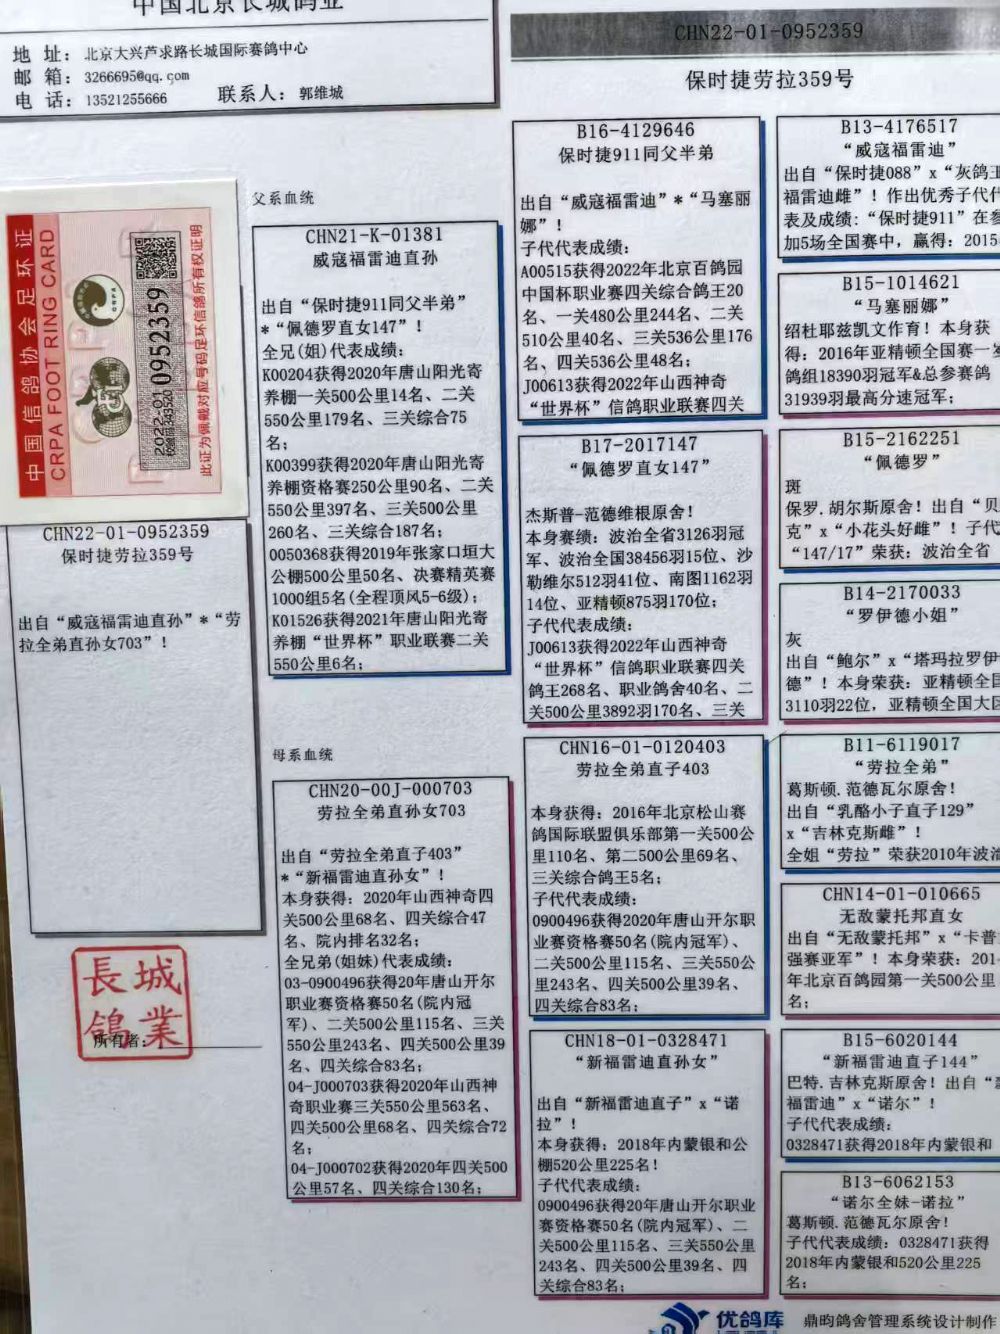 中国北京长城鸽业
地 址：北京大兴芦求路长城国际赛鸽中心
邮 箱：3266695@qq.com
电 话：13521255666 联系人：郭维城
中国信鸽协会足环证
CRPA FOOT RING CARD
2022-01-0952359
此证为佩戴对应号码足环信鸽所有权证明
CHN22-01-0952359
保时捷劳拉359号
出自“威寇福雷迪直孙”*“劳
拉全弟直孙女703”！
長城
鴿業
所有者：
父系血统
CHN21-K-01381
威寇福雷迪直孙
出自“保时捷911同父半弟”
*“佩德罗直女147”！
全兄(姐)代表成绩：
K00204获得2020年唐山阳光寄
养棚一关500公里14名、二关
550公里179名、三关综合75
名；
K00399获得2020年唐山阳光寄
养棚资格赛250公里90名、二关
550公里397名、三关500公里
260名、三关综合187名；
0050368获得2019年张家口垣大
公棚500公里50名、决赛精英赛
1000组5名(全程顶风5-6级)；
K01526获得2021年唐山阳光寄
养棚“世界杯”职业联赛二关
550公里6名；
母系血统
CHN20-00J-000703
劳拉全弟直孙女703
出自“劳拉全弟直子403”
*“新福雷迪直孙女”！
本身获得：2020年山西神奇四
关500公里68名、四关综合47
名、院内排名32名；
全兄弟(姐妹)代表成绩：
03-0900496获得20年唐山开尔
职业赛资格赛50名(院内冠
军)、二关500公里115名、三关
550公里243名、四关500公里39
名、四关综合83名；
04-J000703获得2020年山西神
奇职业赛三关550公里563名、
四关500公里68名、四关综合72
名；
04-J000702获得2020年四关500
公里57名、四关综合130名；
CHN22-01-0952359
保时捷劳拉359号
B16-4129646
保时捷911同父半弟
出自“威寇福雷迪”*“马塞丽
娜”！
子代代表成绩：
A00515获得2022年北京百鸽园
中国杯职业赛四关综合鸽王20
名、一关480公里244名、二关
510公里40名、三关536公里176
名、四关536公里48名；
J00613获得2022年山西神奇
“世界杯”信鸽职业联赛四关
B17-2017147
“佩德罗直女147”
杰斯普-范德维根原舍！
本身赛绩：波治全省3126羽冠
军、波治全国38456羽15位、沙
勒维尔512羽41位、南图1162羽
14位、亚精顿875羽170位；
子代代表成绩：
J00613获得2022年山西神奇
“世界杯”信鸽职业联赛四关
鸽王268名、职业鸽舍40名、二
关500公里3892羽170名、三关
CHN16-01-0120403
劳拉全弟直子403
本身获得：2016年北京松山赛
鸽国际联盟俱乐部第一关500公
里110名、第二500公里69名、
三关综合鸽王5名；
子代代表成绩：
0900496获得2020年唐山开尔职
业赛资格赛50名(院内冠军)、
二关500公里115名、三关550公
里243名、四关500公里39名、
四关综合83名；
CHN18-01-0328471
“新福雷迪直孙女”
出自“新福雷迪直子”x“诺
拉”！
本身获得：2018年内蒙银和公
棚520公里225名！
子代代表成绩：
0900496获得20年唐山开尔职业
赛资格赛50名(院内冠军)、二
关500公里115名、三关550公里
243名、四关500公里39名、四
关综合83名；
B13-4176517
“威寇福雷迪”
出自“保时捷088”x“灰鸽王
福雷迪雌”！作出优秀子代代
表及成绩：“保时捷911”在参
加5场全国赛中，赢得：2015
B15-1014621
“马塞丽娜”
绍杜耶兹凯文作育！本身获
得：2016年亚精顿全国赛一岁
鸽组18390羽冠军&总参赛鸽
31939羽最高分速冠军；
B15-2162251
“佩德罗”
斑
保罗.胡尔斯原舍！出自“贝
克”x“小花头好雌”！子代
“147/17”荣获：波治全省
B14-2170033
“罗伊德小姐”
灰
出自“鲍尔”x“塔玛拉罗伊
德”！本身荣获：亚精顿全国
3110羽22位，亚精顿全国大区
B11-6119017
“劳拉全弟”
葛斯顿.范德瓦尔原舍！
出自“乳酪小子直子129”
x“吉林克斯雌”！
全姐“劳拉”荣获2010年波治
CHN14-01-010665
无敌蒙托邦直女
出自“无敌蒙托邦”x“卡普
强赛亚军”！本身荣获：201
年北京百鸽园第一关500公里
名；
B15-6020144
“新福雷迪直子144”
巴特.吉林克斯原舍！出自“新
福雷迪”x“诺尔”！
子代代表成绩：
0328471获得2018年内蒙银和
B13-6062153
“诺尔全妹-诺拉”
葛斯顿.范德瓦尔原舍！
子代代表成绩：0328471获得
2018年内蒙银和520公里225
名；
优鸽库 鼎昀鸽舍管理系统设计制作